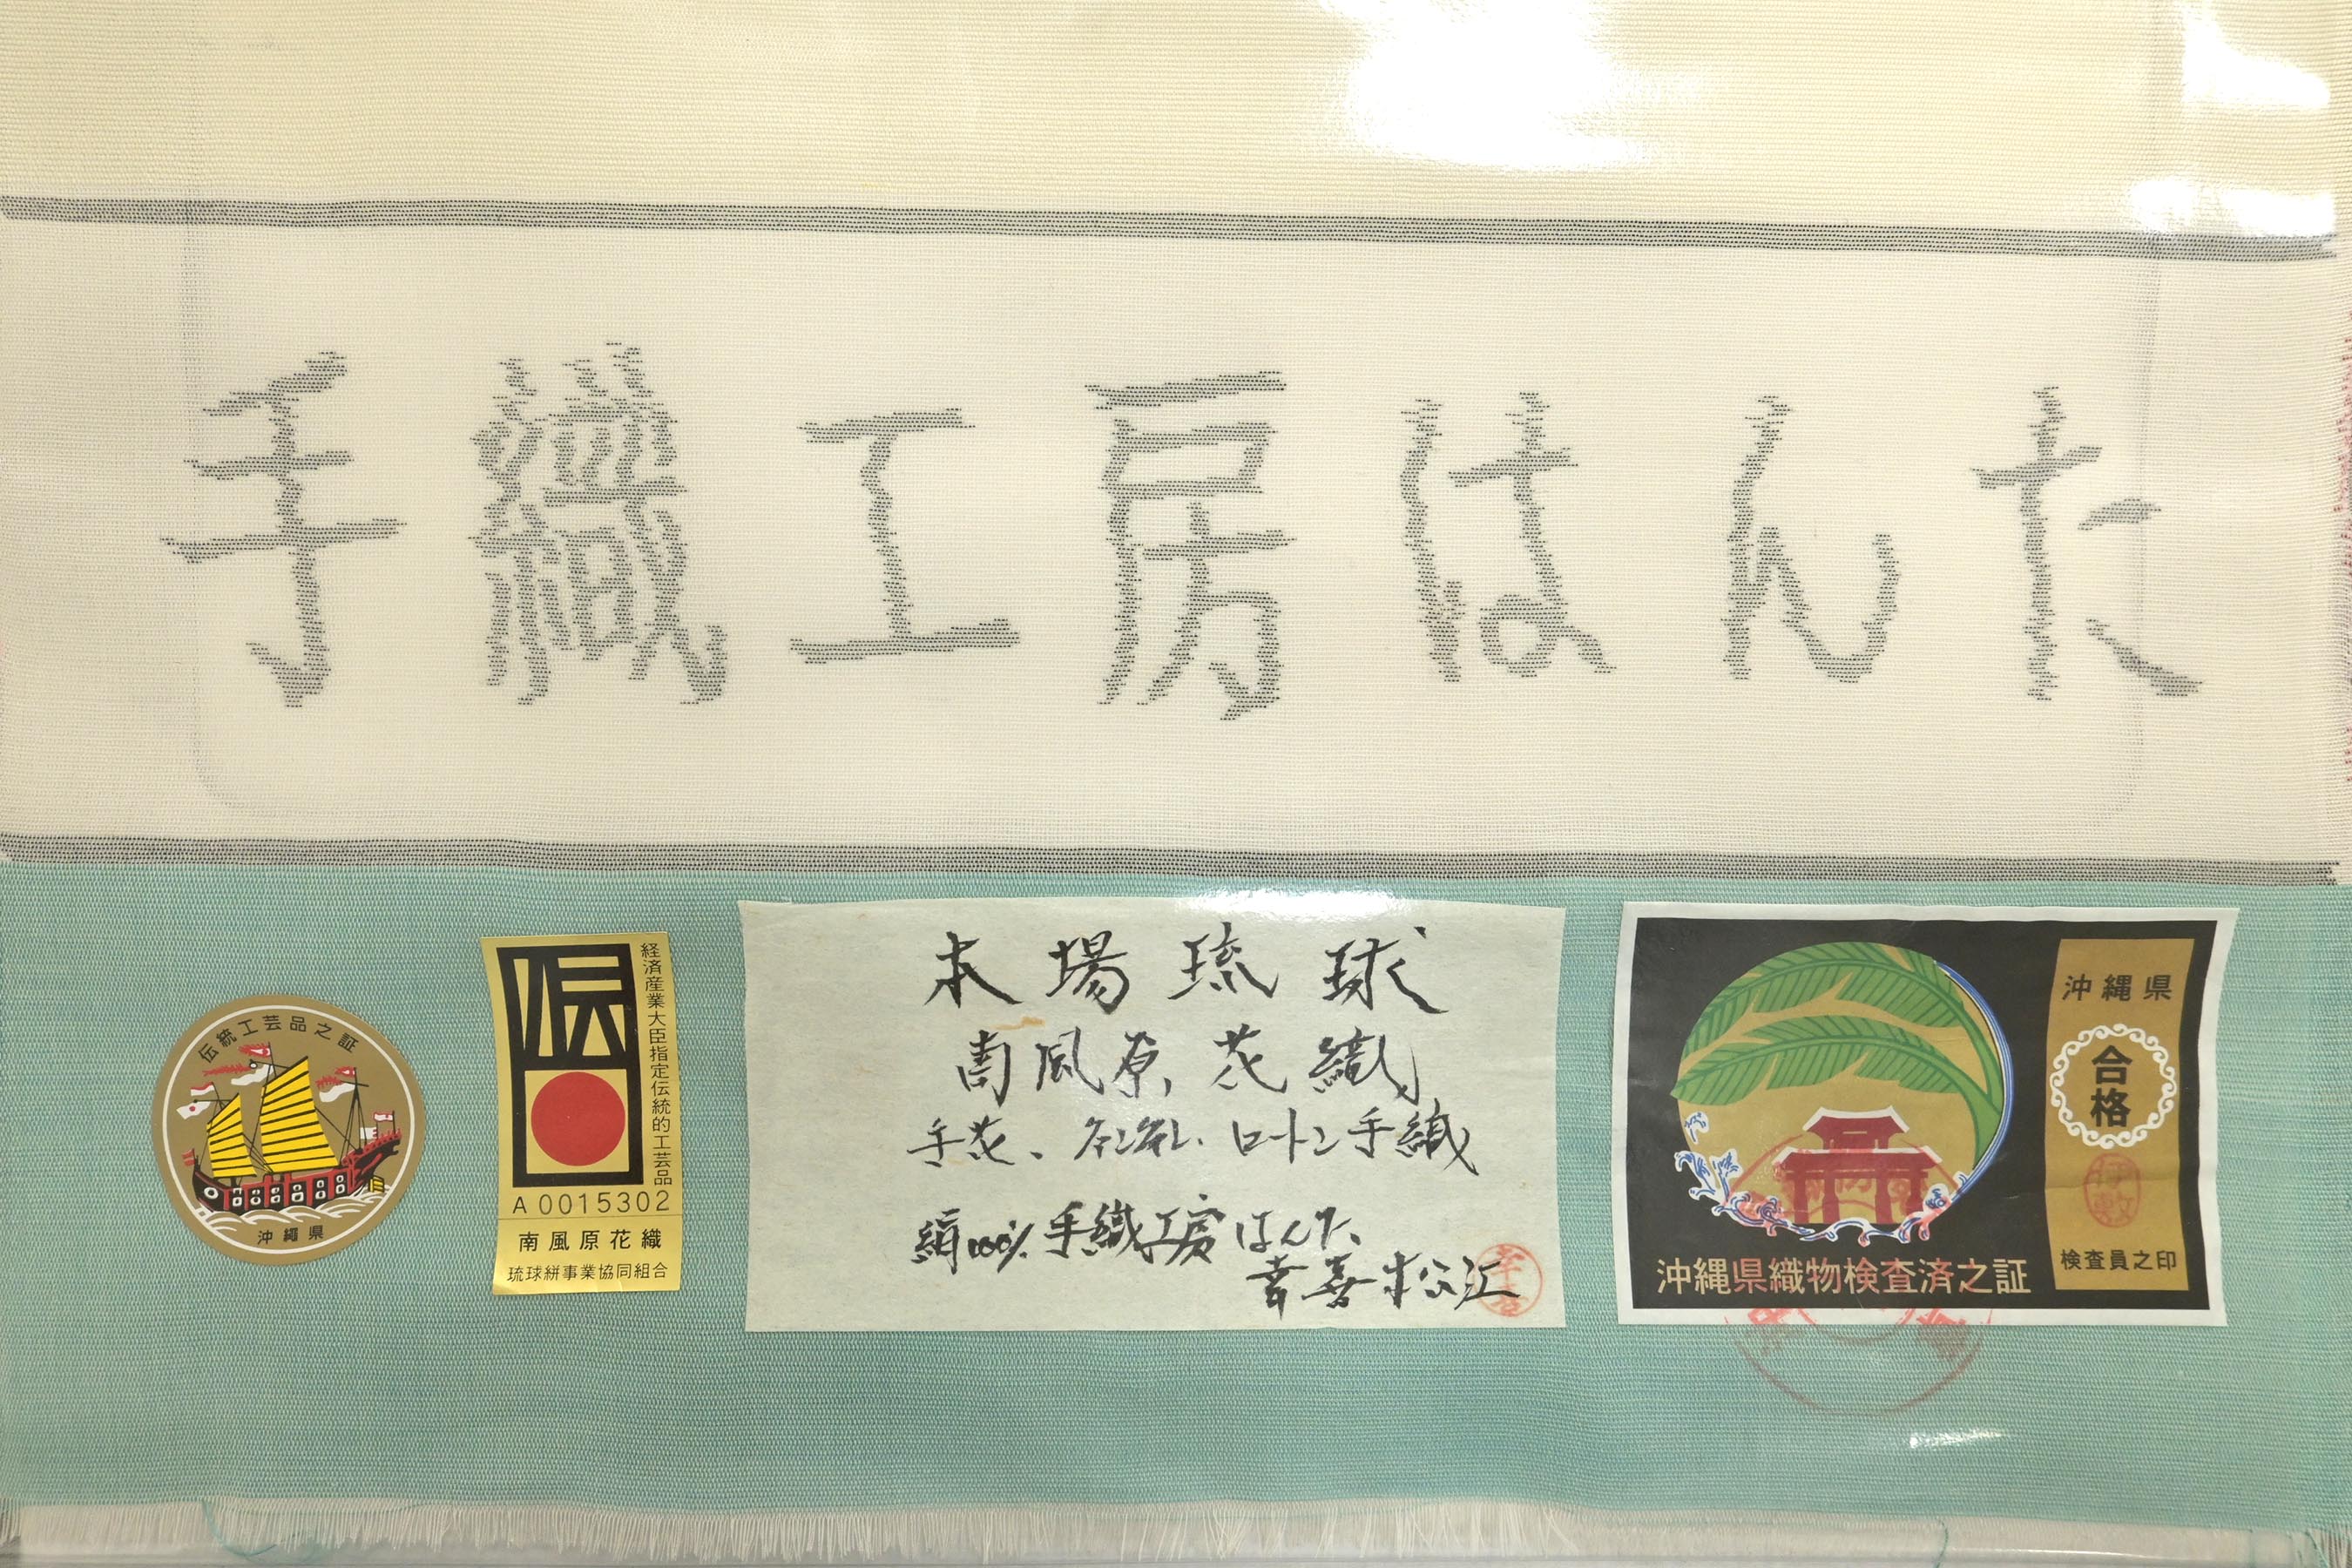 手織工房はんた
伝統工芸品之証
沖縄県
伝
経済産業大臣指定伝統的工芸品
A 0015302
南風原花織
琉球絣事業協同組合
本場琉球
南風原花織
手花、ヤシラミ、ロートン手織
絹100% 手織工房はんた
幸喜松江
沖縄県
合格
検査員之印
沖縄県織物検査済之証